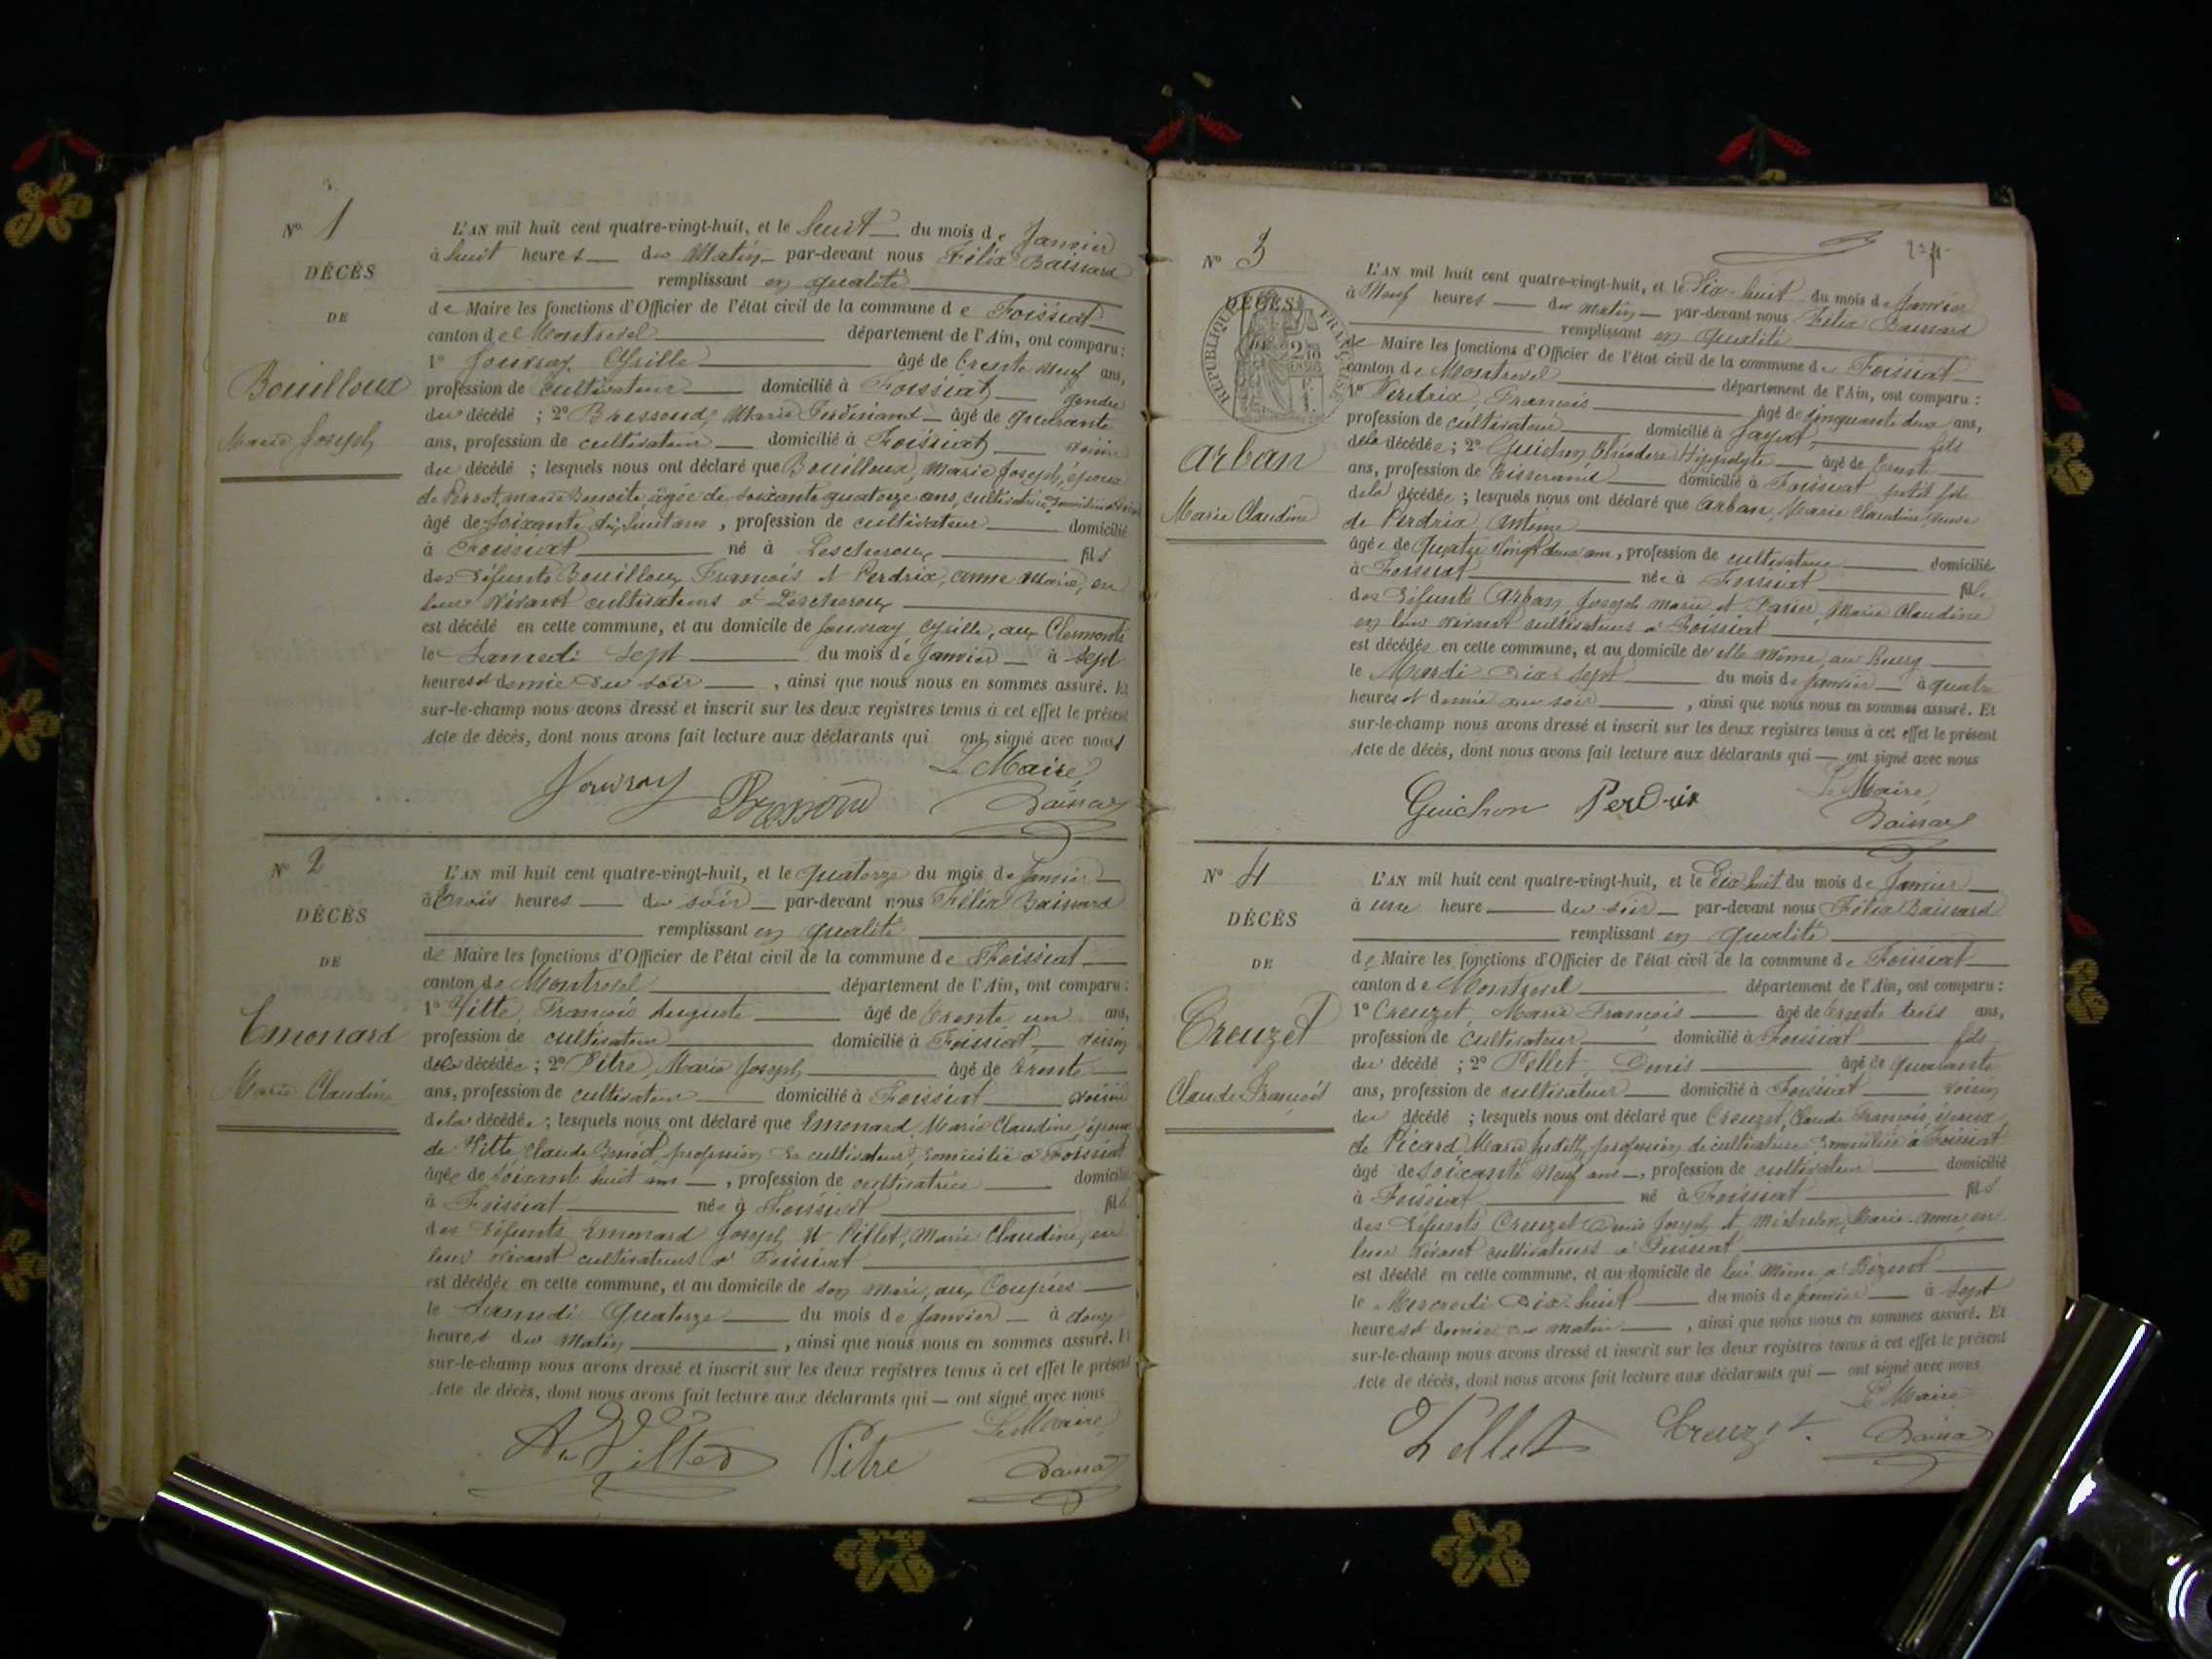 N° 1
DÉCÈS
DE
Bouilloux
Marie Joseph
L'AN mil huit cent quatre-vingt-huit, et le huit du mois de Janvier
à huit heures du Matin par-devant nous Félix Baissard
remplissant en qualité
de Maire les fonctions d'Officier de l'état civil de la commune de Foissiat
canton de Montrevel département de l'Ain, ont comparu :
1° Jouvray, Cyrille âgé de trente neuf ans,
profession de cultivateur domicilié à Foissiat gendre
du décédé ; 2° Bressoud, Marie Ferdinand âgé de quarante
ans, profession de cultivateur domicilié à Foissiat voisin
du décédé ; lesquels nous ont déclaré que Bouilloux, Marie Joseph, époux
de Perrot, Marie Benoite, âgée de soixante quatorze ans, cultivatrice, domiciliée à Foissiat
âgé de soixante dix huit ans, profession de cultivateur domicilié
à Foissiat né à Lescheroux fils
des défunts Bouilloux François et Perdrix, Anne Marie, en
leur vivant cultivateurs à Lescheroux
est décédé en cette commune, et au domicile de Jouvray, Cyrille, aux Clermonts
le Samedi sept du mois de Janvier à sept
heures et demie du soir, ainsi que nous nous en sommes assuré. Et
sur-le-champ nous avons dressé et inscrit sur les deux registres tenus à cet effet le présent
Acte de décès, dont nous avons fait lecture aux déclarants qui ont signé avec nous
Le Maire
Jouvray Bressoud Baissard
N° 2
DÉCÈS
DE
Emonard
Marie Claudine
L'AN mil huit cent quatre-vingt-huit, et le quatorze du mois de Janvier
à trois heures du soir par-devant nous Félix Baissard
remplissant en qualité
de Maire les fonctions d'Officier de l'état civil de la commune de Foissiat
canton de Montrevel département de l'Ain, ont comparu :
1° Vitte, François Auguste âgé de trente un ans,
profession de cultivateur domicilié à Foissiat voisin
de la décédée ; 2° Pitre, Marie Joseph âgé de trente
ans, profession de cultivateur domicilié à Foissiat voisin
de la décédée ; lesquels nous ont déclaré que Emonard, Marie Claudine, épouse
de Vitte, Claude Benoit, profession de cultivateur, domicilié à Foissiat
âgée de soixante huit ans, profession de cultivatrice domicilié
à Foissiat née à Foissiat fille
des défunts Emonard Joseph et Pillet, Marie Claudine, en
leur vivant cultivateurs à Foissiat
est décédée en cette commune, et au domicile de son mari, aux Coupées
le Samedi Quatorze du mois de Janvier à douze
heures du Matin, ainsi que nous nous en sommes assuré. Et
sur-le-champ nous avons dressé et inscrit sur les deux registres tenus à cet effet le présent
Acte de décès, dont nous avons fait lecture aux déclarants qui — ont signé avec nous
Le Maire
Pitre Baissard
N° 3
DÉCÈS
RÉPUBLIQUE FRANÇAISE
Arban
Marie Claudine
L'AN mil huit cent quatre-vingt-huit, et le Dix-huit du mois de Janvier
à Neuf heures du matin par-devant nous Félix Baissard
remplissant en qualité
de Maire les fonctions d'Officier de l'état civil de la commune de Foissiat
canton de Montrevel département de l'Ain, ont comparu :
1° Perdrix, François âgé de cinquante deux ans,
profession de cultivateur domicilié à Jayat fils
de la décédée ; 2° Guichon Théodore Hippolyte âgé de trente
ans, profession de Tisserand domicilié à Foissiat petit fils
de la décédée ; lesquels nous ont déclaré que Arban, Marie Claudine, veuve
de Perdrix, Antoine
âgée de Quatre Vingt deux ans, profession de cultivateur domicilié
à Foissiat née à Foissiat fille
des défunts Arban, Joseph Marie et Marie Claudine
en leur vivant cultivateurs à Foissiat
est décédée en cette commune, et au domicile de elle même, au Bourg
le Mardi Dix sept du mois de Janvier à quatre
heures et demie du soir, ainsi que nous nous en sommes assuré. Et
sur-le-champ nous avons dressé et inscrit sur les deux registres tenus à cet effet le présent
Acte de décès, dont nous avons fait lecture aux déclarants qui — ont signé avec nous
Le Maire,
Guichon Perdrix Baissard
N° 4
DÉCÈS
DE
Creuzet
Claude François
L'AN mil huit cent quatre-vingt-huit, et le Dix huit du mois de Janvier
à une heure du soir par-devant nous Félix Baissard
remplissant en qualité
de Maire les fonctions d'Officier de l'état civil de la commune de Foissiat
canton de Montrevel département de l'Ain, ont comparu :
1° Creuzet, Marie François âgé de trente trois ans,
profession de cultivateur domicilié à Foissiat fils
du décédé ; 2° Pellet, Denis âgé de quarante
ans, profession de cultivateur domicilié à Foissiat voisin
du décédé ; lesquels nous ont déclaré que Creuzet, Claude François, époux
de Picard, Marie Judith, profession de cultivatrice, domiciliée à Foissiat
âgé de soixante Neuf ans, profession de cultivateur domicilié
à Foissiat né à Foissiat fils
des défunts Creuzet Denis Joseph et Marie-Anne, en
leur vivant cultivateurs à Foissiat
est décédé en cette commune, et au domicile de lui même, à
le Mercredi Dix-huit du mois de Janvier à sept
heures et demie du matin, ainsi que nous nous en sommes assuré. Et
sur-le-champ nous avons dressé et inscrit sur les deux registres tenus à cet effet le présent
Acte de décès, dont nous avons fait lecture aux déclarants qui — ont signé avec nous
Le Maire
Pellet Creuzet Baissard